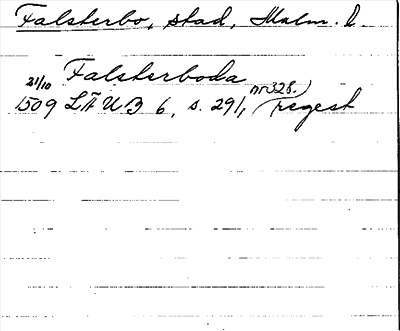 Falsterbo, stad, Malm. l.
Falsterboda
21/10 nr 328.)
1509 LÄUB 6, s. 291, (regest